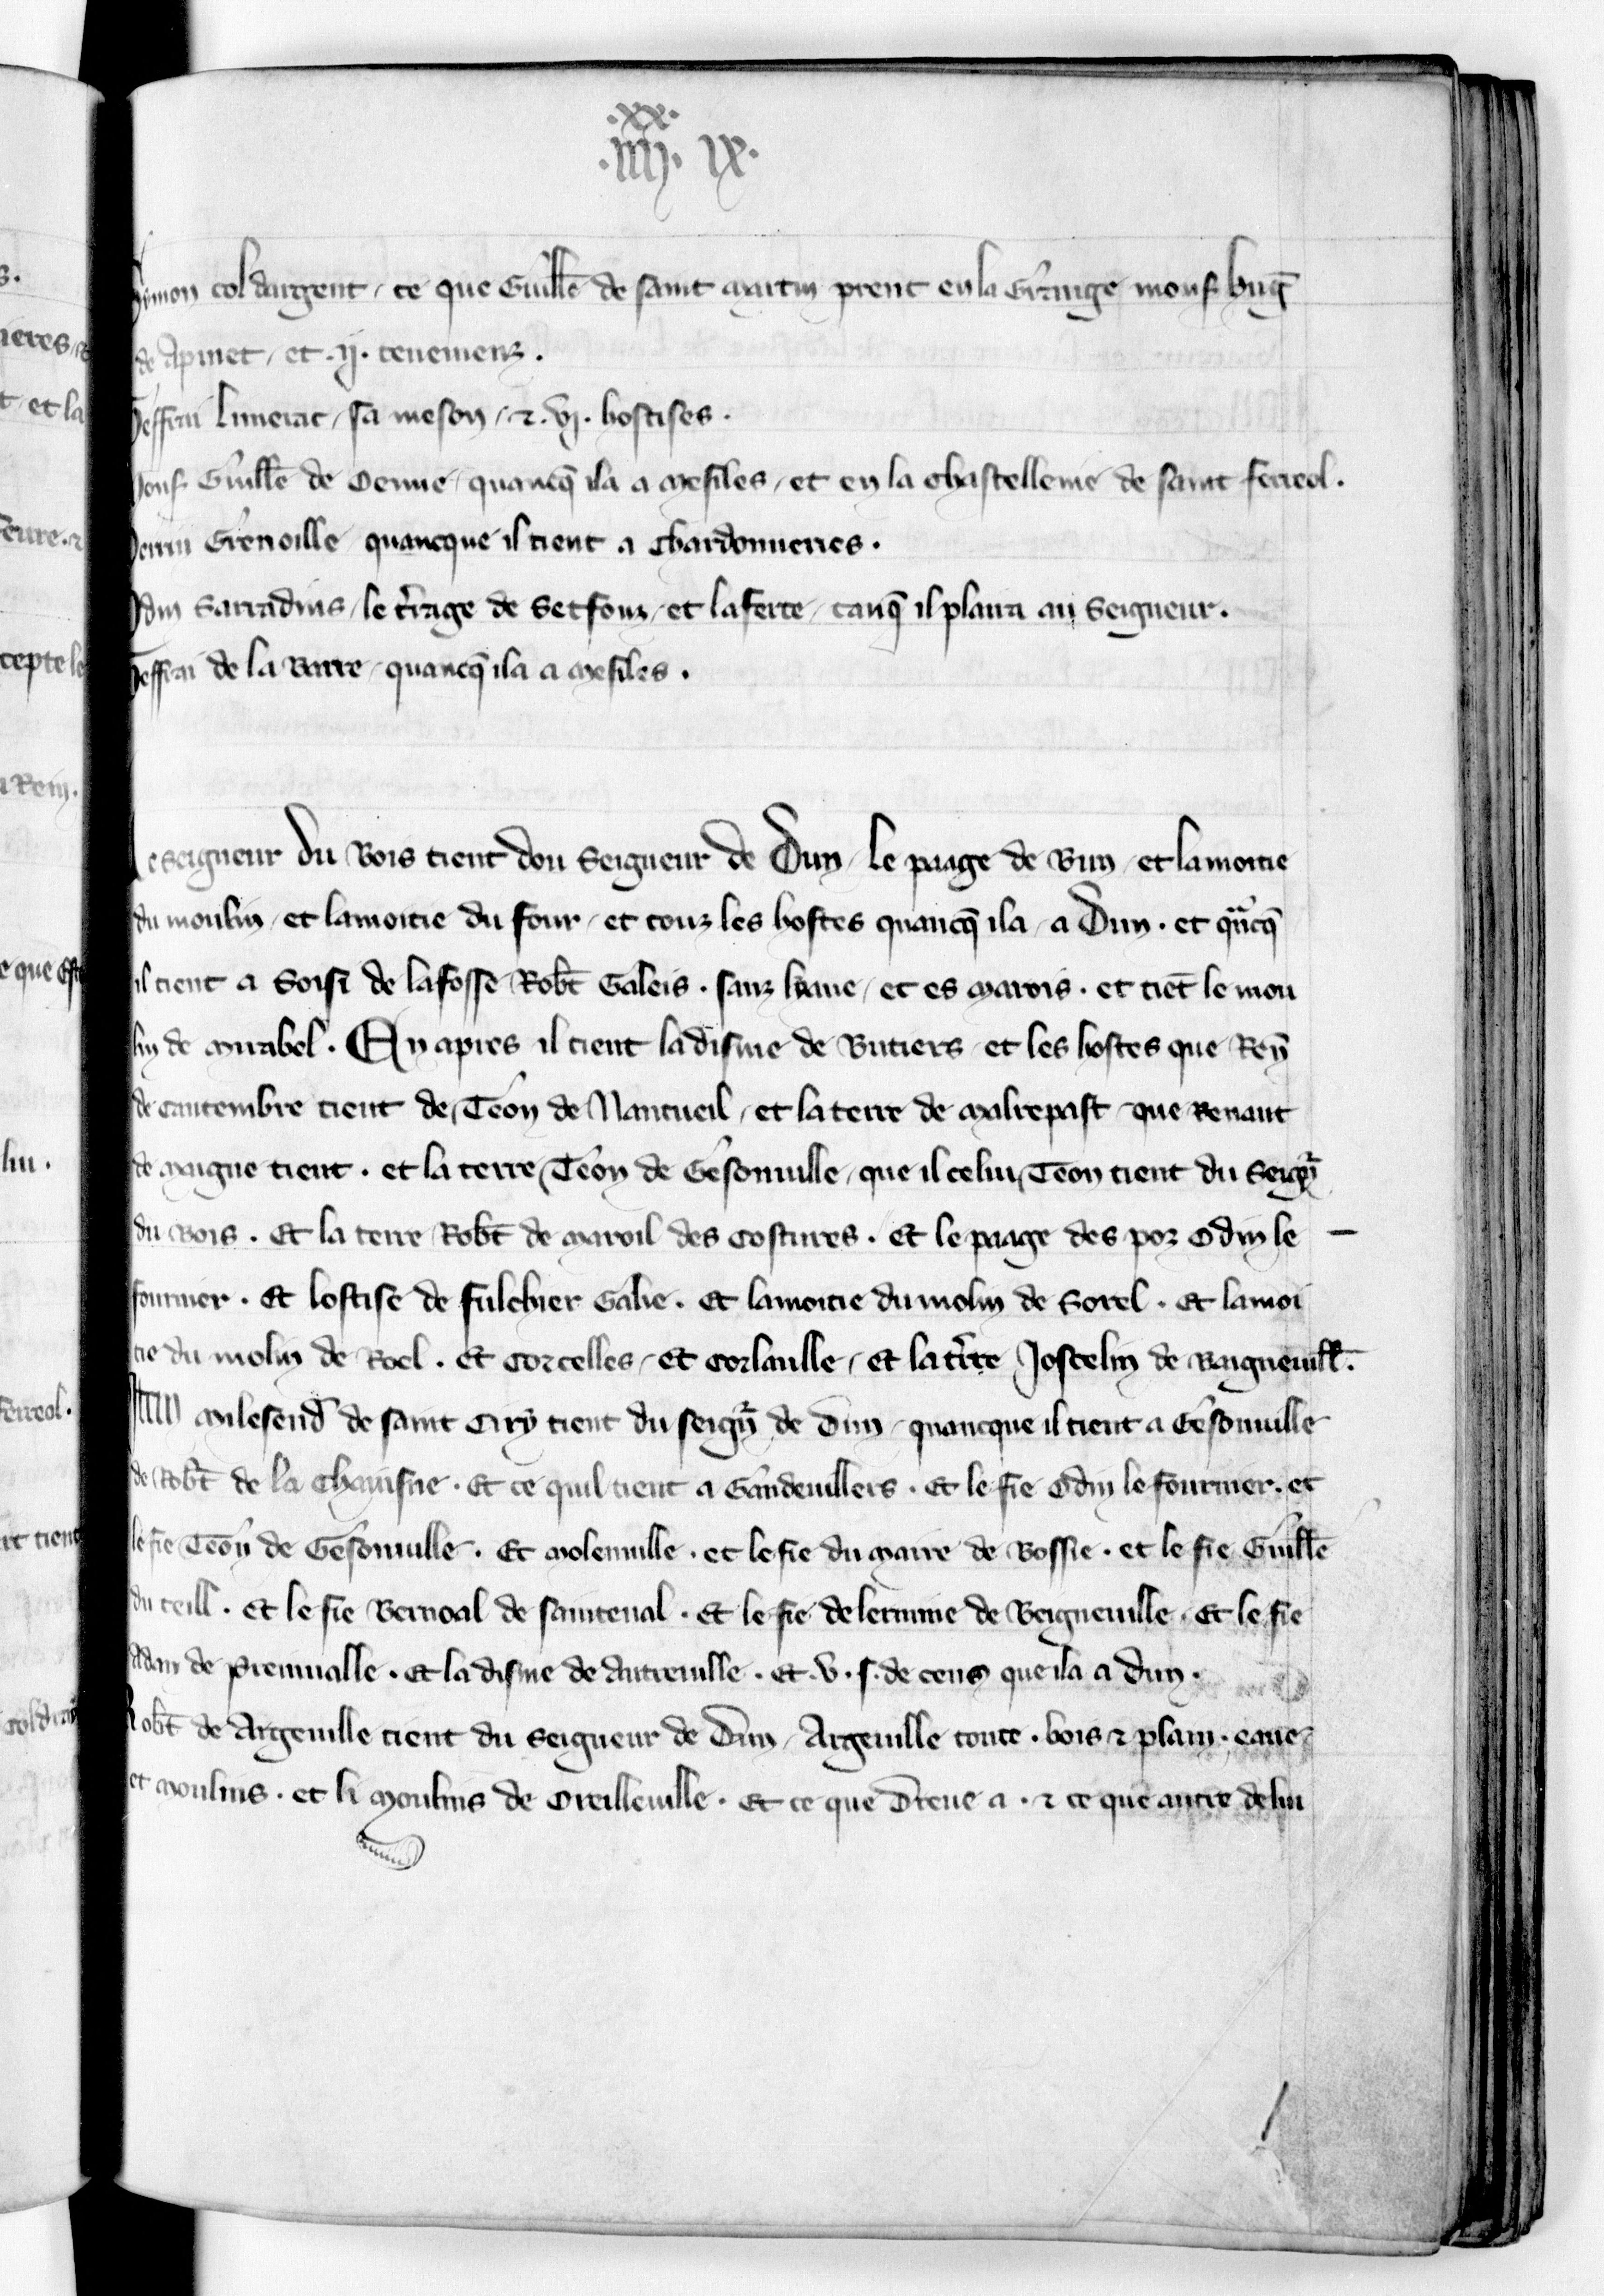 .xx.
.iiij. ix.
Symon col dargent, ce que Guill̃e de saint martin prent en la Grange mons. hug̃
de Apinet, et .ij. tenemenz.
Geffrai Limerac, sa meson, ⁊ .vj. hostises.
Mons. Guill̃e de Oenne, quancq̃ il a a Mesiles, et en la Chastellenie de saint ferreol.
Perrin Grenoille quancque il tient a Chardonneries.
Odin Sarradins, le t̃rage de Setfonz, et la ferte, tanq̃ il plaira au Seigneur.
Geffrai de la Barre, quancq̃ il a a Mesiles.
Le seigneur du Bois tient dou Seigneur de Dun, le paage de Bun, et la moitie
du moulin, et la moitie du four, et touz les hostes quancq̃ il a, a Dun. et q̃ncq̃
il tient a Soisi de la fosse Rob̃t Galeis. sanz hyaue, et es Marois. et tiẽt le mou
lin de Mirabel. En apres il tient la disme de Butiers, et les hostes que Reñ
de Cantembre tient de Teõn de Nantueil, et la terre de Malrepast, que Renaut
de Maigne tient. et la terre Teõn de Gesonuille, que il celui Teõn tient du Seigñ
du Bois. Et la terre Rob̃t de Maroil des Costures. Et le paage des poz Odin le –
fournier. Et lostise de Fulchier Galie. Et la moitie du molin de Sorel. Et la moi
tie du molin de Roel. Et Corcelles, Et Corlaulle, Et la t̃rre Joscelin de Baigneuill̃.
Item Milesend̃ de saint Ciry tient du seigñ de Dun, quancque il tient a Gesonuille
de Rob̃t de la Chausiie. Et ce quil tient a Gandeuillers. Et le fie Odin le fournier. et
le fie Teõn de Gesonuille. Et Molenuille. et le fie du Maire de Bossie. et le fie Guill̃e
du teill. Et le fie Bernoal de sainteual. Et le fie de lermine de Beigneuille. Et le fie
Adan de Premualle. Et la disme de Autreuille. Et .v. s. de cens que il a a Dun.
Rob̃t de Argeuille tient du Seigneur de Dun, Argeuille toute. bois ⁊ plain. eaue,
et Moulins. et li Moulins de Oreilleuille. Et ce que Dreue a. ⁊ ce que autre de lui